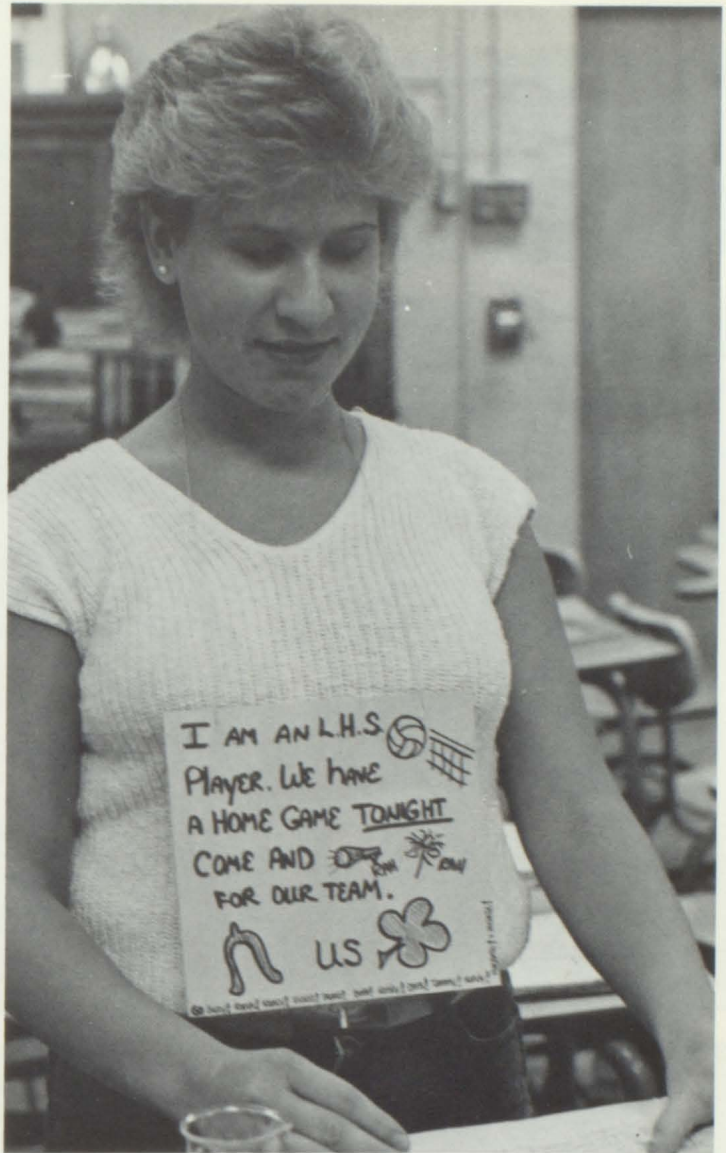 I AM AN L.H.S.
PLAYER. WE hAVE
A HOME GAME TONIGHT
COME AND RAH RAH
FOR OUR TEAM.
US